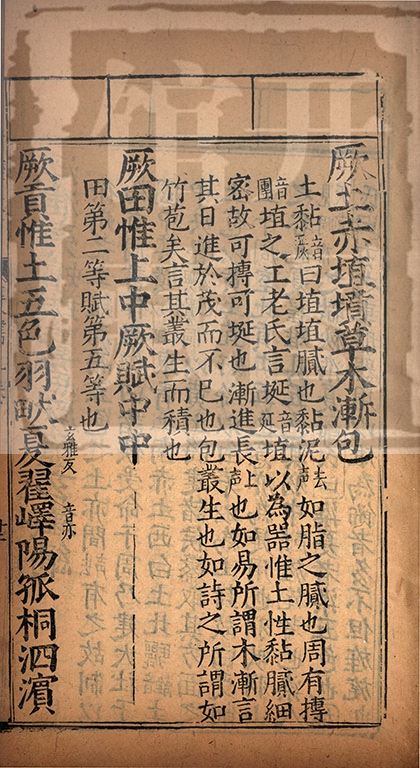 厥土赤埴墳草木漸包
土黏音炎曰埴埴膩也黏泥去声如脂之膩也周有摶
音團埴之工老氏言埏音延埴以為器惟土性黏膩細
密故可摶可埏也漸進長上声也如易所謂木漸言
其日進於茂而不已也包叢生也如詩之所謂如
竹苞矣言其叢生而積也
厥田惟上中厥賦中中
田第二等賦第五等也
厥貢惟土五色羽畎夏翟嶧音亦陽孤桐泗濱